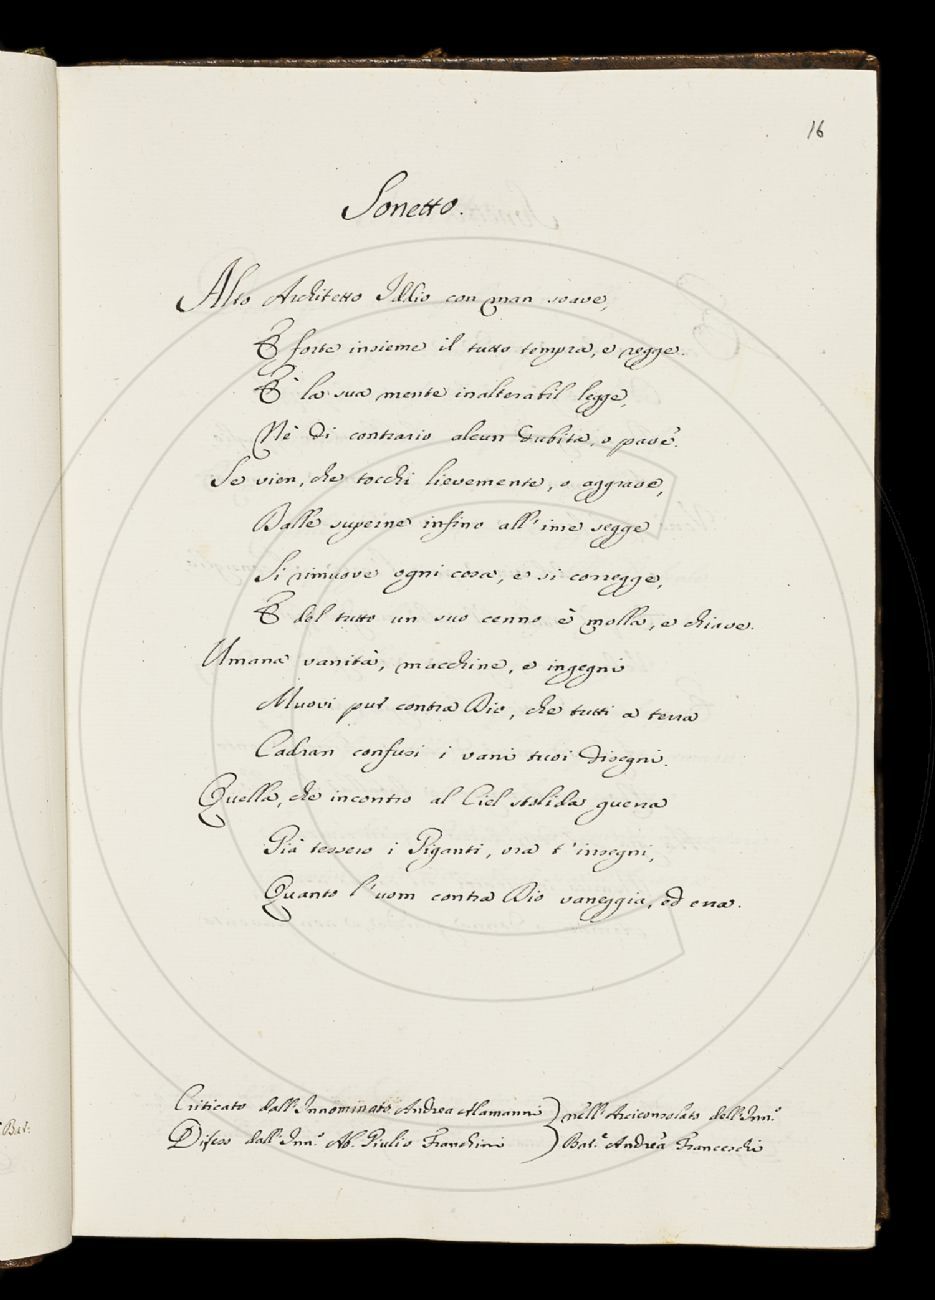 16
Sonetto.
Alto Architetto Iddio con man soave,
E forte insieme il tutto tempra, e regge.
E' la sua mente inalterabil legge,
Nè di contrario alcun dubita, o pave.
Se vien, che tocchi lievemente, o aggrave,
Dalle superne infino all'ime segge
Si rimuove ogni cosa, e si corregge,
E del tutto un suo cenno è molla, e chiave.
Umana vanità, macchine, e ingegni
Muovi pur contra Dio, che tutti a terra
Cadran confusi i vani tuoi disegni.
Quella, che incontro al Ciel stolida guerra
Già tessero i Giganti, ora t'insegni,
Quanto l'uom contra Dio vaneggia, ed erra.
Criticato dall'Innominato Andrea Alamanni } nell'Arciconsolato dell'Inn.º
Difeso dall'Inn.º Ab. Giulio Franchini } Bal.º Andrea Franceschi
Bal: